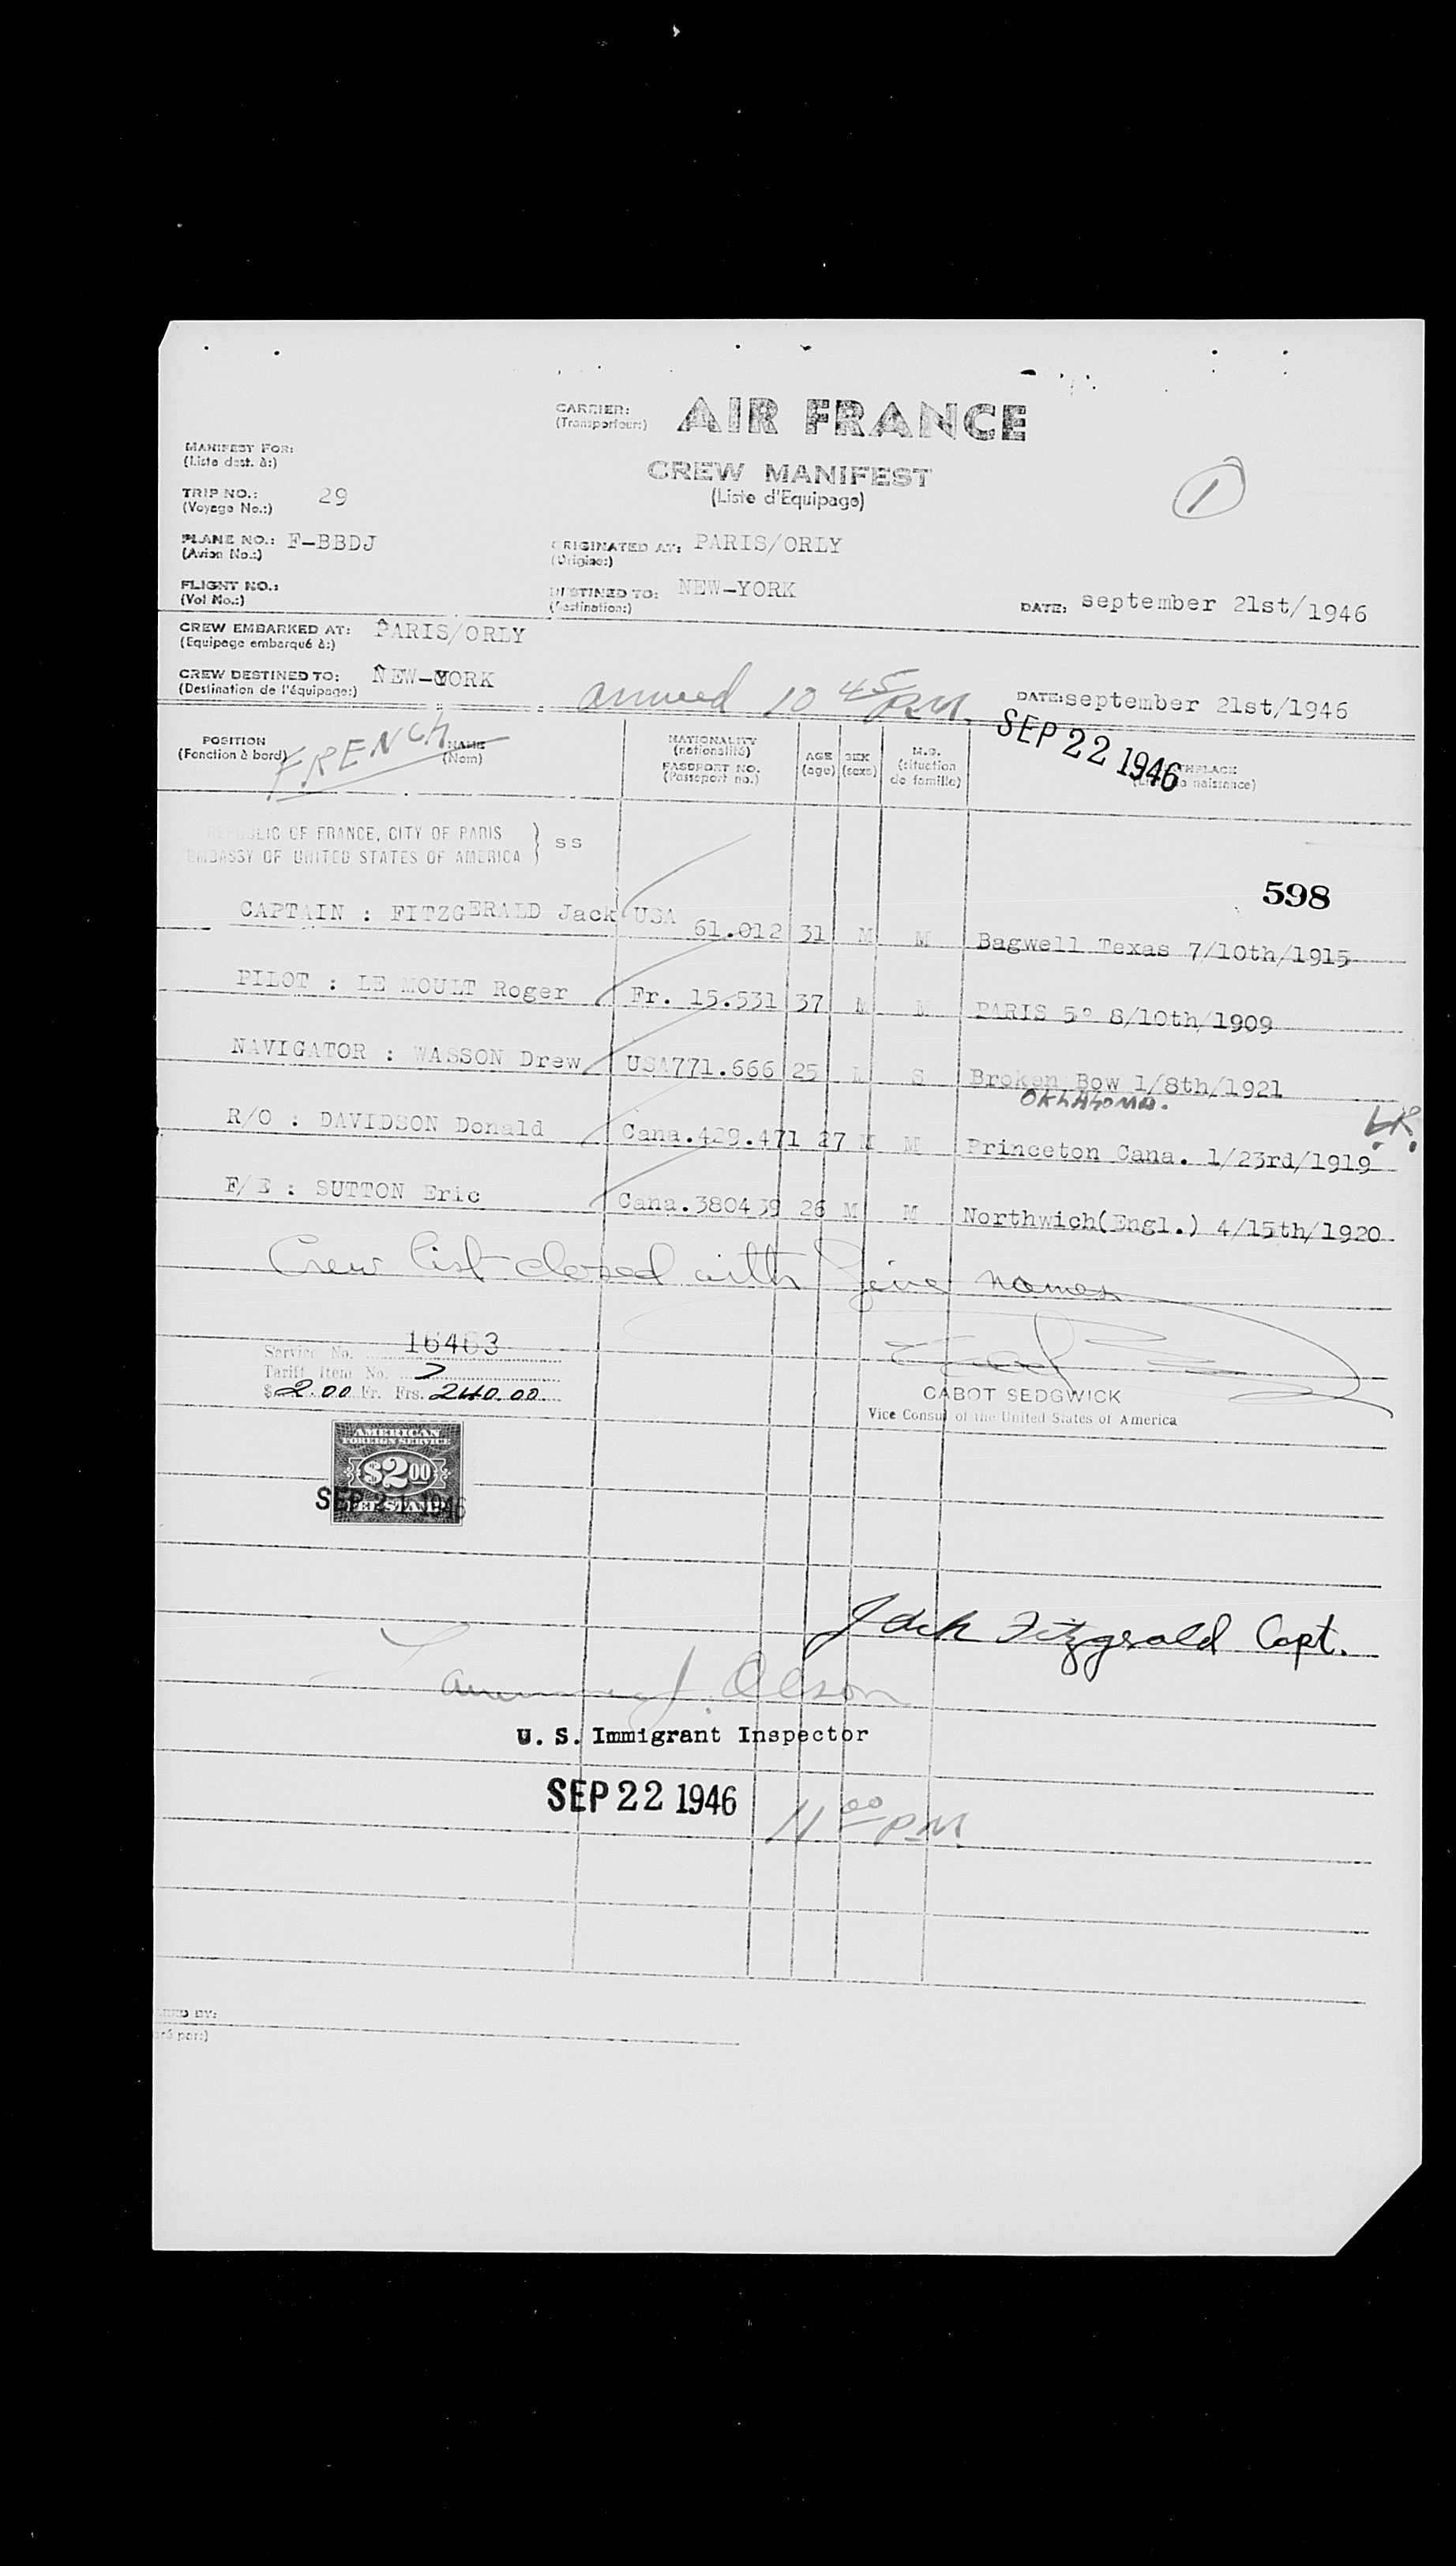 CARRIER: AIR FRANCE
(Transporteur:)
MANIFEST FOR:
(Liste dest. à:)
CREW MANIFEST
(Liste d'Equipage)
1
TRIP NO.: 29
(Voyage No.:)
PLANE NO.: F-BBDJ
(Avion No.:)
ORIGINATED AT: PARIS/ORLY
(Origine:)
FLIGHT NO.:
(Vol No.:)
DESTINED TO: NEW-YORK
(Destination:)
DATE: september 21st/1946
CREW EMBARKED AT: PARIS/ORLY
(Equipage embarqué à:)
CREW DESTINED TO: NEW-YORK
(Destination de l'équipage:)
arrived 10 45 P.M.
DATE: september 21st/1946
SEP 22 1946
POSITION
(Fonction à bord)
FRENCH
NAME
(Nom)
NATIONALITY
(nationalité)
PASSPORT NO.
(Passeport no.)
AGE
(age)
SEX
(sexe)
M.S.
(situction
de famille)
THPLACE
naissance)
REPUBLIC OF FRANCE, CITY OF PARIS
EMBASSY OF UNITED STATES OF AMERICA } SS
598
CAPTAIN : FITZGERALD Jack USA 61.012 31 M M Bagwell Texas 7/10th/1915
PILOT : LE MOULT Roger Fr. 15.531 37 M M PARIS 5° 8/10th/1909
NAVIGATOR : WASSON Drew USA771.666 25 M S Broken Bow 1/8th/1921
OKLAHOMA.
R/O : DAVIDSON Donald Cana.429.471 27 M M Princeton Cana. 1/23rd/1919
F/E : SUTTON Eric Cana.380439 26 M M Northwich(Engl.) 4/15th/1920
Crew list closed with five names
Service No. 16403
Tariff Item No. 7
$ 2.00 Fr. Frs. 240.00
CABOT SEDGWICK
Vice Consul of the United States of America
AMERICAN
FOREIGN SERVICE
$2.00
FEE STAMP
SEP 21 1946
Jack Fitzgerald Capt.
J. Olson
U. S. Immigrant Inspector
SEP 22 1946
11 00 PM